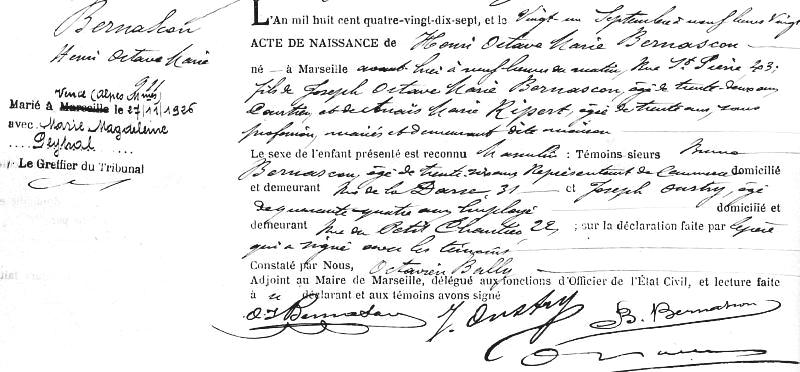 Bernascon
Henri Octave Marie
Vence (Alpes Mmes)
Marié à Marseille le 27/11/1926
avec Marie Magdeleine
Peyrat
Le Greffier du Tribunal
L'An mil huit cent quatre-vingt-dix-sept, et le Vingt un Septembre à neuf heures vingt
ACTE DE NAISSANCE de Henri Octave Marie Bernascon
né à Marseille avant hier à neuf heures du matin, Rue St Pierre 23;
fils de Joseph Octave Marie Bernascon, âgé de trente deux ans
Courtier, et de Anaïs Marie Ripert, âgée de trente ans, sans
profession, mariés et demeurant dite maison
Le sexe de l'enfant présenté est reconnu Masculin : Témoins sieurs Bruno
Bernascon, âgé de trente ans Représentant de Commerce domicilié
et demeurant Rue de la Darse 31 et Joseph Oustry, âgé
de quarante quatre ans Employé domicilié et
demeurant Rue du Petit Chantier 22, ; sur la déclaration faite par le père
qui a signé avec les témoins
Constaté par Nous, Octavien Bally
Adjoint au Maire de Marseille, délégué aux fonctions d'Officier de l'État Civil, et lecture faite
à déclarant et aux témoins avons signé
O J Bernascon J. Oustry B. Bernascon